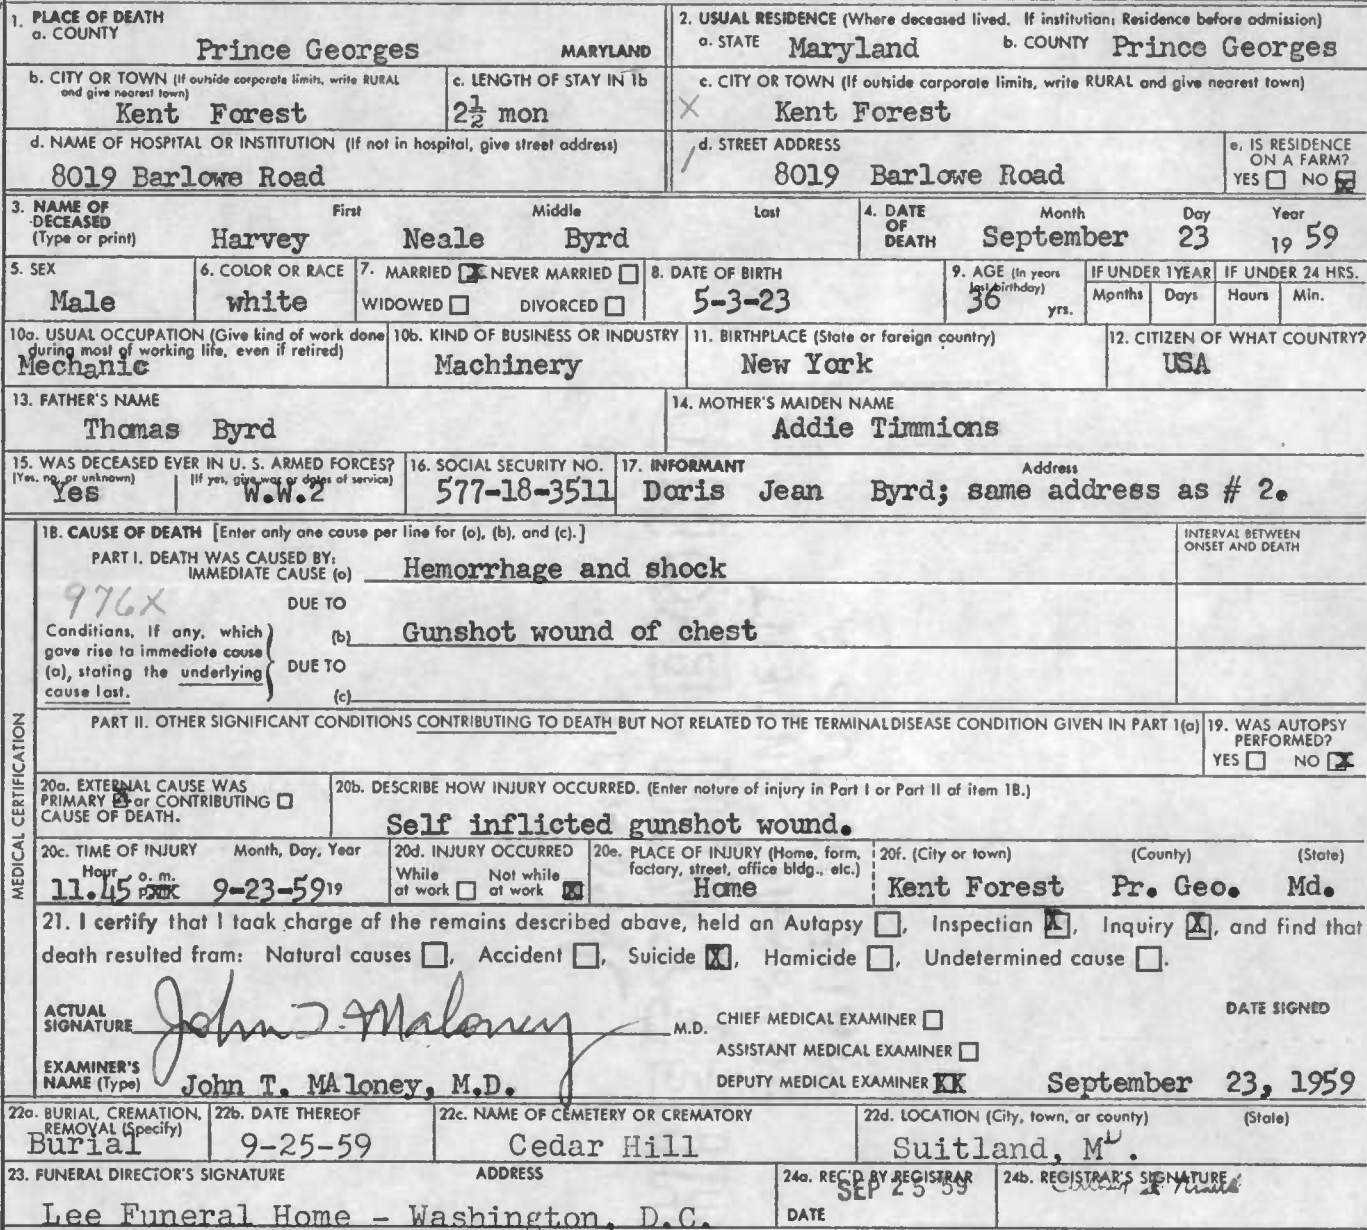 1. PLACE OF DEATH
a. COUNTY
Prince Georges MARYLAND
2. USUAL RESIDENCE (Where deceased lived. If institution: Residence before admission)
a. STATE Maryland b. COUNTY Prince Georges
b. CITY OR TOWN (If outside corporate limits, write RURAL and give nearest town)
Kent Forest
c. LENGTH OF STAY IN 1b
2½ mon
c. CITY OR TOWN (If outside corporate limits, write RURAL and give nearest town)
Kent Forest
d. NAME OF HOSPITAL OR INSTITUTION (If not in hospital, give street address)
8019 Barlowe Road
d. STREET ADDRESS
8019 Barlowe Road
e. IS RESIDENCE ON A FARM?
YES NO X
3. NAME OF DECEASED (Type or print)
First Middle Last
Harvey Neale Byrd
4. DATE OF DEATH
Month Day Year
September 23 19 59
5. SEX
Male
6. COLOR OR RACE
white
7. MARRIED X NEVER MARRIED
WIDOWED DIVORCED
8. DATE OF BIRTH
5-3-23
9. AGE (In years last birthday)
36 yrs.
IF UNDER 1 YEAR
Months Days
IF UNDER 24 HRS.
Hours Min.
10a. USUAL OCCUPATION (Give kind of work done during most of working life, even if retired)
Mechanic
10b. KIND OF BUSINESS OR INDUSTRY
Machinery
11. BIRTHPLACE (State or foreign country)
New York
12. CITIZEN OF WHAT COUNTRY?
USA
13. FATHER'S NAME
Thomas Byrd
14. MOTHER'S MAIDEN NAME
Addie Timmions
15. WAS DECEASED EVER IN U. S. ARMED FORCES?
(Yes, no, or unknown) (If yes, give war or dates of service)
Yes W.W.2
16. SOCIAL SECURITY NO.
577-18-3511
17. INFORMANT Address
Doris Jean Byrd; same address as # 2.
MEDICAL CERTIFICATION
18. CAUSE OF DEATH [Enter only one cause per line for (a), (b), and (c).]
INTERVAL BETWEEN ONSET AND DEATH
PART I. DEATH WAS CAUSED BY:
IMMEDIATE CAUSE (a) Hemorrhage and shock
976X
DUE TO
Conditions, if any, which gave rise to immediate cause (a), stating the underlying cause last.
(b) Gunshot wound of chest
DUE TO
(c)
PART II. OTHER SIGNIFICANT CONDITIONS CONTRIBUTING TO DEATH BUT NOT RELATED TO THE TERMINAL DISEASE CONDITION GIVEN IN PART I(a)
19. WAS AUTOPSY PERFORMED?
YES NO X
20a. EXTERNAL CAUSE WAS
PRIMARY X or CONTRIBUTING
CAUSE OF DEATH.
20b. DESCRIBE HOW INJURY OCCURRED. (Enter nature of injury in Part I or Part II of item 18.)
Self inflicted gunshot wound.
20c. TIME OF INJURY Month, Day, Year
Hour a. m.
11.45 p.m. 9-23-59 19
20d. INJURY OCCURRED
While at work Not while at work X
20e. PLACE OF INJURY (Home, farm, factory, street, office bldg., etc.)
Home
20f. (City or town) (County) (State)
Kent Forest Pr. Geo. Md.
21. I certify that I took charge of the remains described above, held an Autopsy , Inspection X, Inquiry X, and find that
death resulted from: Natural causes , Accident , Suicide X, Homicide , Undetermined cause .
ACTUAL SIGNATURE John T. Maloney M.D.
CHIEF MEDICAL EXAMINER
DATE SIGNED
ASSISTANT MEDICAL EXAMINER
EXAMINER'S NAME (Type) John T. MAloney, M.D.
DEPUTY MEDICAL EXAMINER XX September 23, 1959
22a. BURIAL, CREMATION, REMOVAL (Specify)
Burial
22b. DATE THEREOF
9-25-59
22c. NAME OF CEMETERY OR CREMATORY
Cedar Hill
22d. LOCATION (City, town, or county) (State)
Suitland, MD.
23. FUNERAL DIRECTOR'S SIGNATURE ADDRESS
Lee Funeral Home - Washington, D.C.
24a. REC'D BY REGISTRAR
SEP 25 59
DATE
24b. REGISTRAR'S SIGNATURE